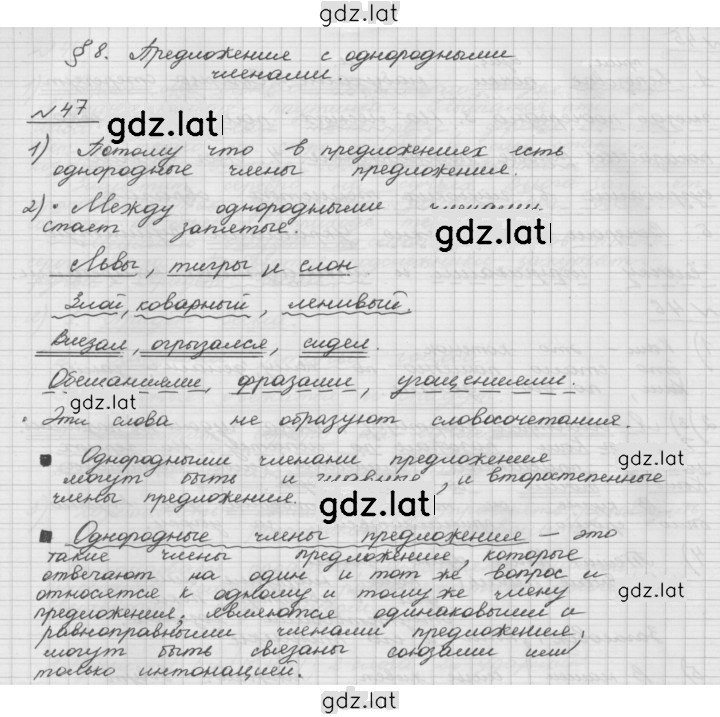 gdz.lat
§ 8. Предложения с однородными
членами.
№ 47
gdz.lat
1) Потому что в предложениях есть
однородные члены предложения.
2) • Между однородными членами
стает запятые.
gdz.lat
Львы, тигры и слон.
Злой, коварный, ленивый.
Влезал, огрызался, сидел.
Обещаниями, фразами, угощениями.
gdz.lat
• Эти слова не образуют словосочетания.
■ Однородными членами предложения
gdz.lat
могут быть и главные, и второстепенные
члены предложения.
gdz.lat
■ Однородные члены предложения – это
такие члены предложение, которые
отвечают на один и тот же вопрос и
gdz.lat
относятся к одному и тому же члену
предложения, являются одинаковыми и
равноправными членами предложения,
могут быть связаны союзами или
только интонацией.
gdz.lat